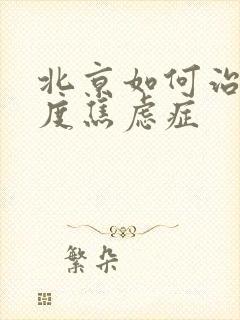 北京如何治
度焦虑症
繁朵